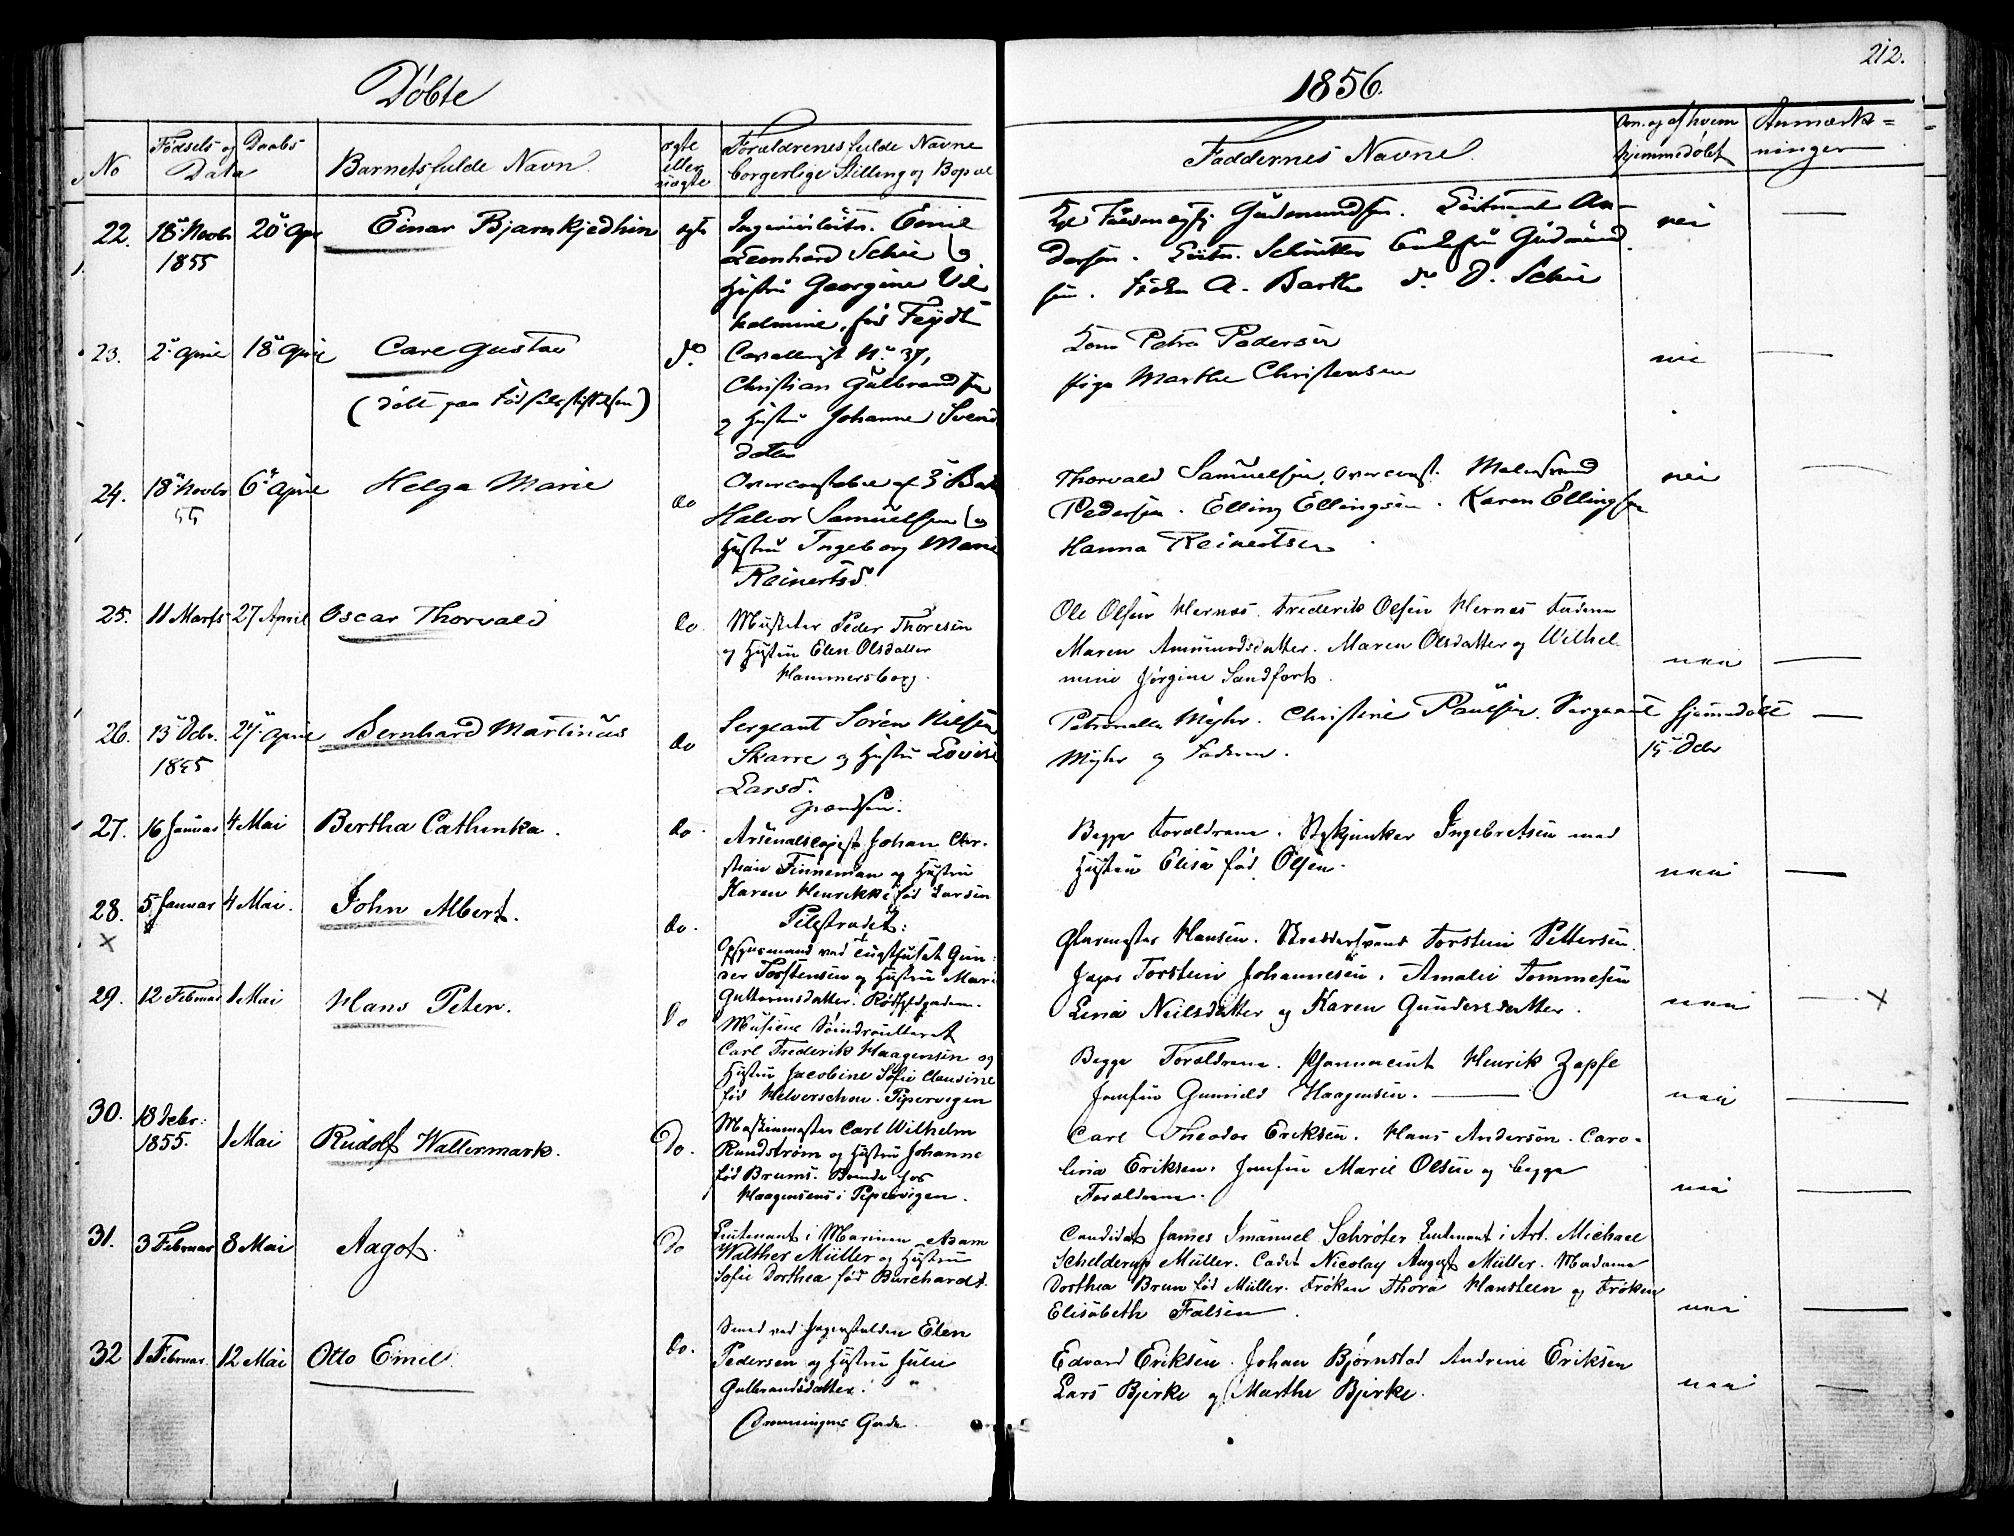 212.
Døbte
1856.
No
Fødsels og Daabs
Data
Barnets fulde Navn.
ægte
eller
uægte
Forældrenes fulde Navne
borgerlige Stilling og Bopæl
Faddernes Navne.
Om og af hvem
hjemmedøbt
Anmærk=
ninger
22. 18 Novbr 20 Apr Einar Bjarn ægte Emil
1855
Leonhard Schie og
Hustru Georgine Vil
helmine, fød Feydt
Gudmundsen. An-
dersen. A. Barth do D. Schie
nei
23. 2 April 18 April Carl Gustav do.
(døbt paa Fødselsstiftelsen)
No 37,
Christian Gulbrandsen
og Hustru Johanne Svends
datter
Petra Pedersen
Pige Marthe Christensen
nei
24. 18 Novbr 6 April Helga Marie do
55
Overconstabel af 3 Bat
Halvor Samuelsen og
Hustru Ingeborg Marie
Reinertsd.
Thorvald Samuelsen, Overconst.
Pedersen. Elling Ellingsen. Karen Ellingsen
Hanna Reinertsen
nei
25. 11 Marts 27 April Oscar Thorvald do.
Musketer Peder Thoresen
og Hustru Elen Olsdatter
Hammersborg.
Ole Olsen Hernes. Frederik Olsen Hernes Faderen
Maren Amundsdatter. Maren Olsdatter og Wilhel
mine Jørgine Sandfort.
nei
26. 13 Debr. 27 April Bernhard Martinus do
1855
Sergeant Søren Nilsen
Skarre og Hustru Lovise
Larsd.
Grændsen.
Petronelle Myhr. Christine Paulsen. Sergeant
Myhr og Faderen.
hjemmedøbt
15 Debr
27. 16 Januar 4 Mai Bertha Cathinka. do.
Johan Chr.
stian Finneman og Hustru
Karen Henrikke fød Larsen
Pilestrædet.
Begge Forældrene. Stykjunker Ingebretsen med
Hustru Elise fød Olsen.
nei
28. 5 Januar 4 Mai. John Albert. do.
Opsynsmand ved Tugthuset Gun=
der Torstensen og Hustru Mari
Guttormsdatter. Rødfyldgaden.
Glarmester Hansen. Skreddersvend Torstein Pettersen.
Torstein Johannesen. Amalie Tommesen
Nielsdatter og Karen Gundersdatter.
nei
29. 12 Februar 1 Mai Hans Peter. Do
Carl Frederik Haagensen og
Hustru Jacobine Sofie Clausine
fød Helverschou. Pipervigen
Begge Forældrene. Farmaceut Henrik Zapfe
Jomfru Gunild Haagensen.
nei
30. 18 Debr: 1 Mai Rudolf Wallermark. Do.
1855.
Maskinmester Carl Wilhelm
Rundstrøm og Hustru Johanne
fød Bruns. Boende hos
Haagensens i Pipervigen.
Carl Theodor Eriksen. Hans Andersen. Caro-
line Eriksen. Jomfru Marie Olsen og begge
Forældrene.
nei
31. 3 Februar 8 Mai Aagot. Do
Lieutenant i Marinen Adam
Walther Müller og Hustru
Sofie Dorthea fød Burchardt.
Candidat James Imanuel Schrøter Lieutenant i Art. Michael
Schelderup Müller. Cadet Nicolay August Müller. Madame
Dorthea Brun fød Müller. Frøken Thora Hansteen og Frøken
Elisabeth Falsen.
nei
32 1 Februar. 12 Mai Otto Emil. do.
Smed ved Elen
Pedersen og Hustru Julie
Gulbrandsdatter.
Dronningens Gade.
Edvard Eriksen. Johan Bjørnstad Andrine Eriksen
Lars Bjerke og Marthe Bjerke.
nei